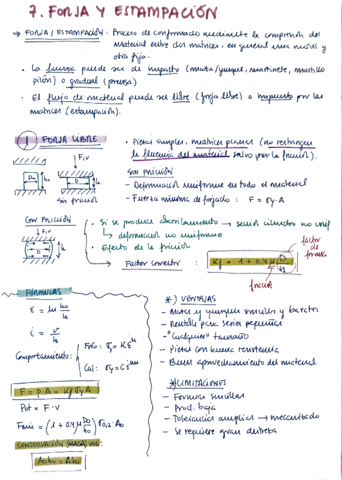 7. FORJA Y ESTAMPACIÓN
→ FORJA/ESTAMPACIÓN: Proceso de conformado mediante la compresión del
material entre dos matrices. en general una móvil y
otra fija.
• La fuerza puede ser de impacto (maza/yunque, martinete, martillo
pilón) o gradual (prensa)
• El flujo de material puede ser libre (forja libre) o impuesto por las
matrices (estampación).
1 FORJA LIBRE
• Piezas simples, matrices planas (no restringen
la fluencia del material salvo por la fricción).
F,v
D₀
h₀
F,v
h
sin fricción
SIN FRICCIÓN
- Deformación uniforme en todo el material
- Fuerza mínima de forjado: F = σy·A
CON FRICCIÓN
F,v
h
• Si se produce abarrilamiento → sección cilindro no unif
↳ deformación no uniforme
• Efecto de la fricción
↳ Factor corrector
Kf = 1 + 0,4 μ D/h
factor de forma
fricción
FÓRMULAS
ε = ln h₀/h
ε̇ = v/h
Comportamiento:
Frío: σy = Kεⁿ
Cal: σy = Cε̇ᵐ
F = p·A = Kf σy A
Pot = F·v
Fini = (1 + 0,4 μ D₀/h₀) σ0,2·A₀
CONSERVACIÓN (MASA)
A₀h₀ = A·h
*) VENTAJAS
- Mazas y yunques sencillos y baratos
- Rentable para series pequeñas
- "Cualquier" tamaño
- Piezas con buena resistencia
- Buen aprovechamiento del material
*) LIMITACIONES
- Formas sencillas
- Prod. baja
- Tolerancias amplias → mecanizado
- Se requiere gran destreza